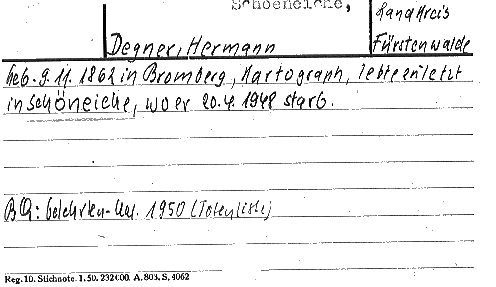 Schoeneiche,
Landkreis
Degner, Hermann
Fürstenwalde
Geb. 9.11.1862 in Bromberg, Kartograph, lebte zuletzt
in Schöneiche, wo er 20.4.1948 starb.
BQ: Gelehrten-Kal. 1950 (Totenliste)
Reg. 10. Stichnote. 1. 50. 232000. A. 803. S. 4062